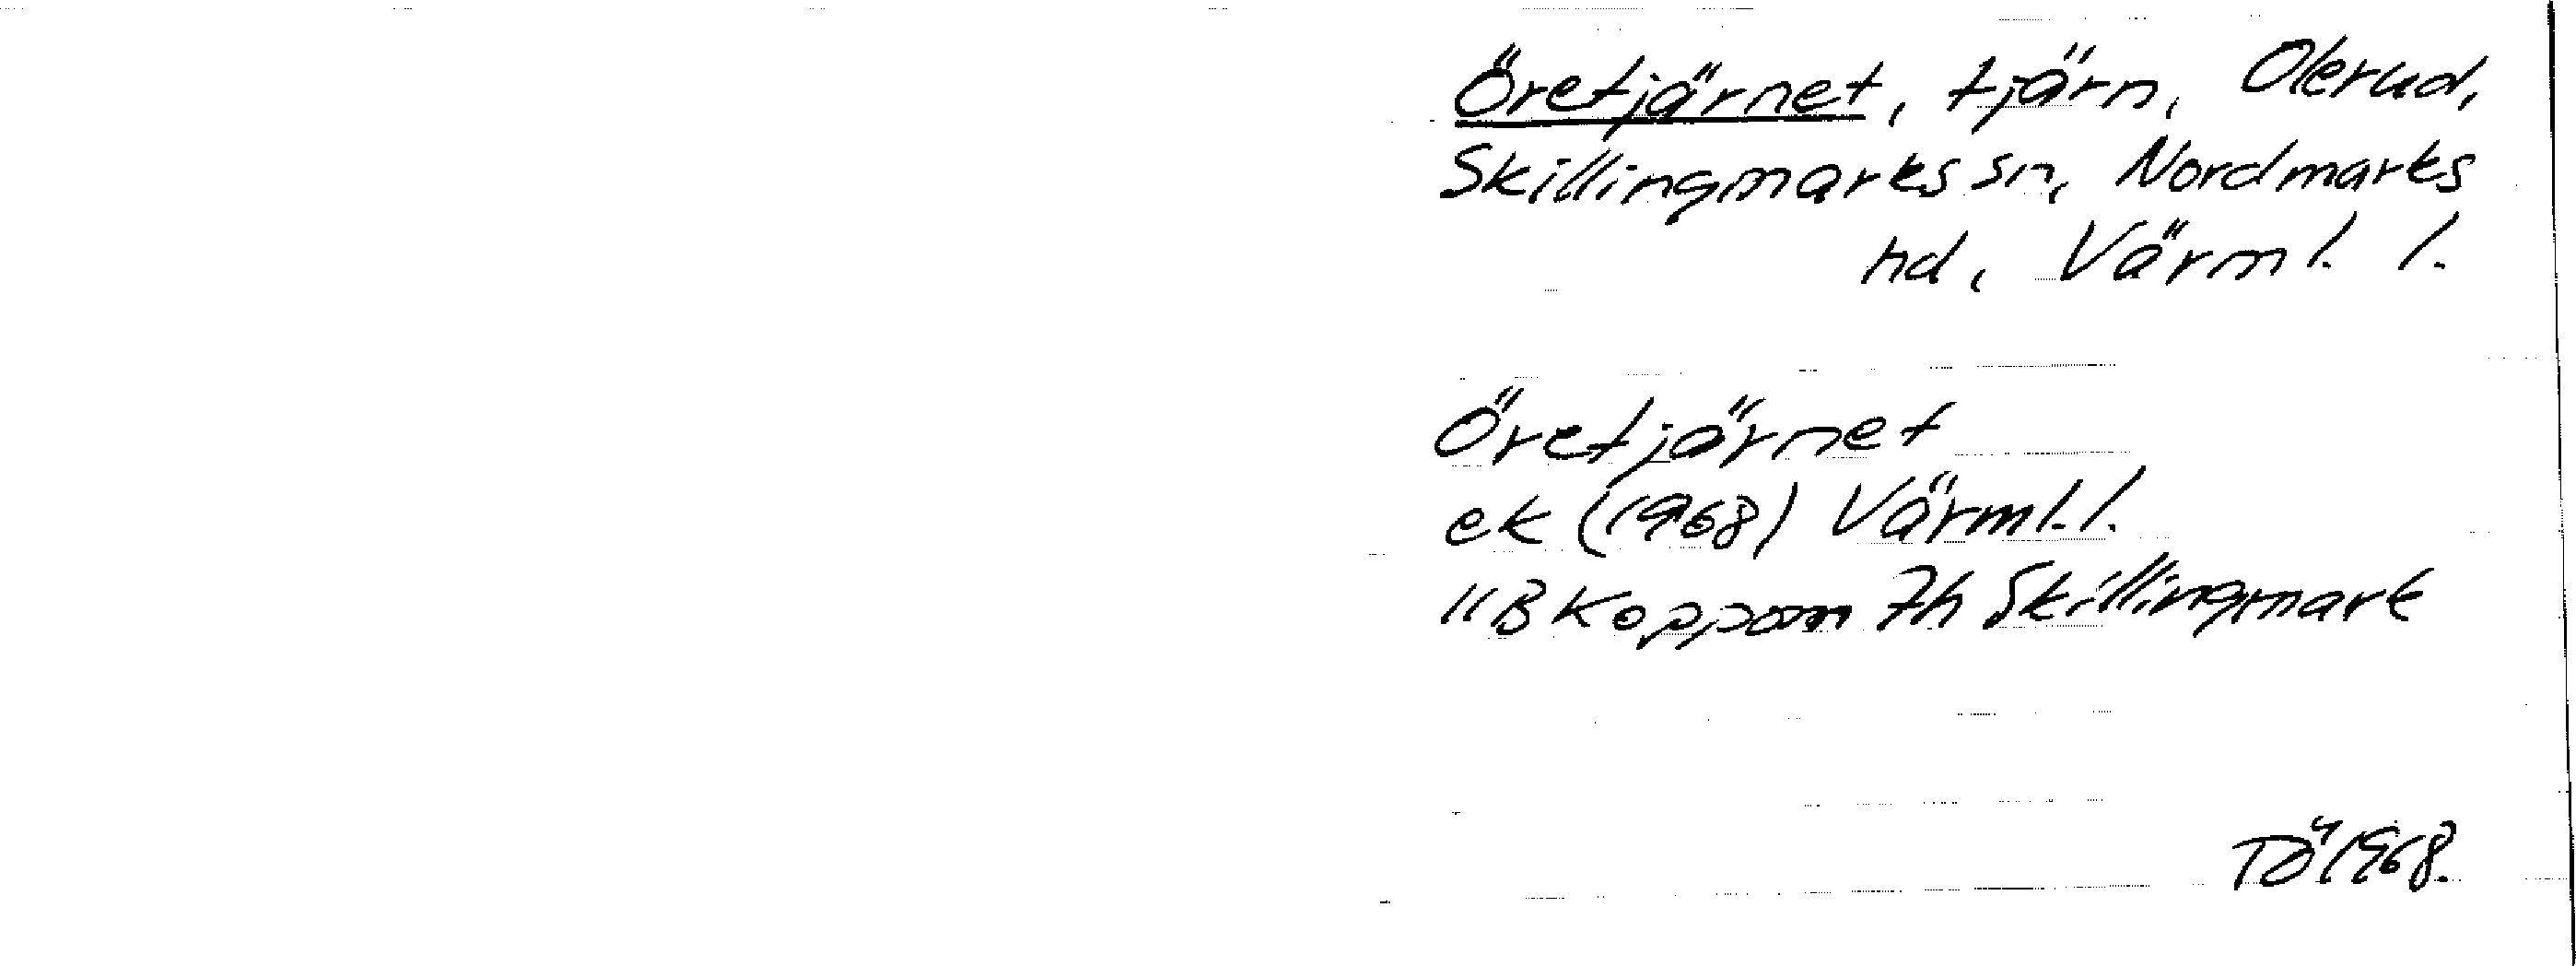 Öretjärnet, tjärn, Olerud,
Skillingmarks sn, Nordmarks
hd, Värml. l.
Öretjärnet
ek (1968) Värml. l.
11B Koppom 7h Skillingmark
TÖ 1968.